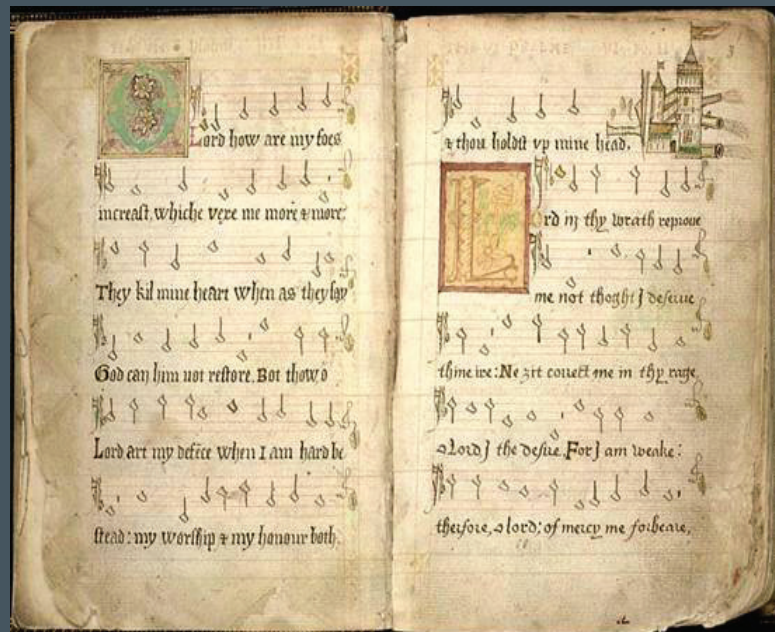 Lord how are my foes
increast, whiche vexe me more & more:
They kil mine heart when as they say
God can him not restore. Bot thow, o
Lord art my defēce when I am hard be
stead: my worship & my honour both.
3
& thou holdst vp mine head.
Lord in thy wrath reproue
me not thoght J deserue
thine ire: Ne zit correct me in thy rage
o Lord J the desire. For J am weake:
therfore, o lord: of mercy me forbeare,